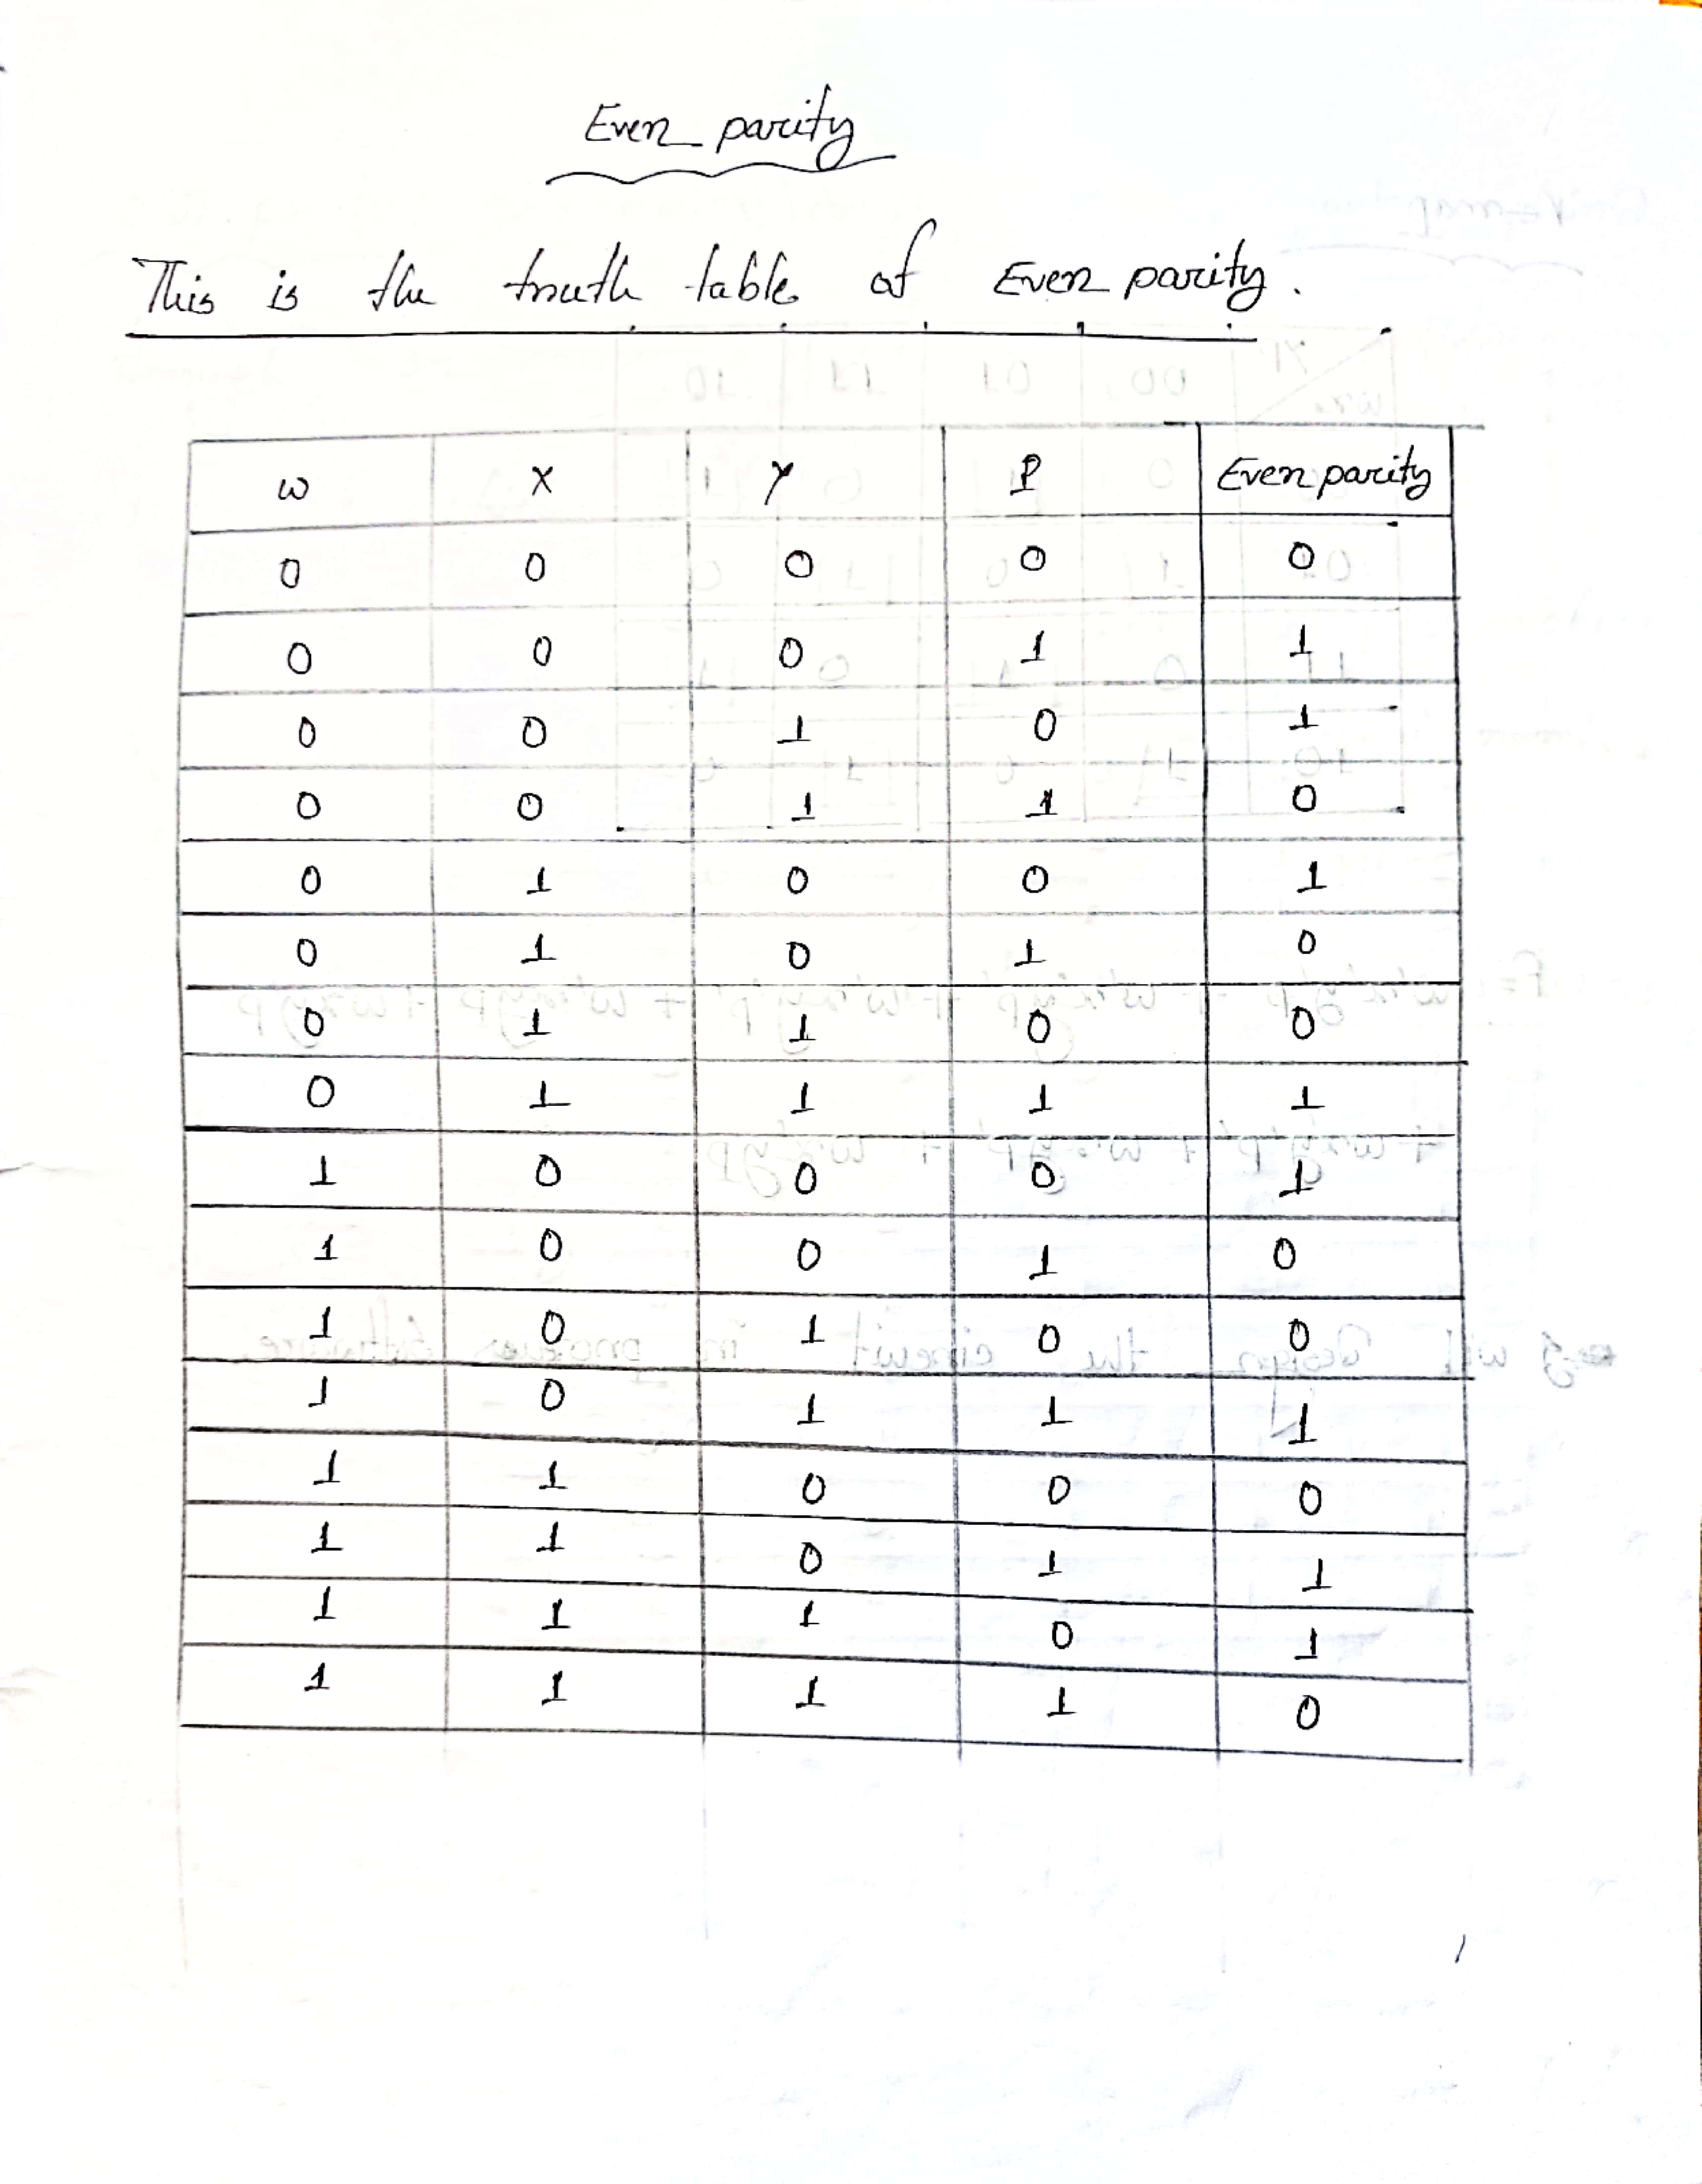 Even parity
This is the truth table of Even parity.
w X Y P Even parity
0 0 0 0 0
0 0 0 1 1
0 0 1 0 1
0 0 1 1 0
0 1 0 0 1
0 1 0 1 0
0 1 1 0 0
0 1 1 1 1
1 0 0 0 1
1 0 0 1 0
1 0 1 0 0
1 0 1 1 1
1 1 0 0 0
1 1 0 1 1
1 1 1 0 1
1 1 1 1 0